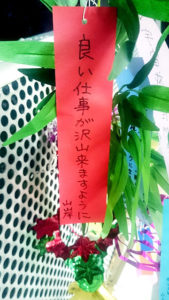 良い仕事が沢山来ますように